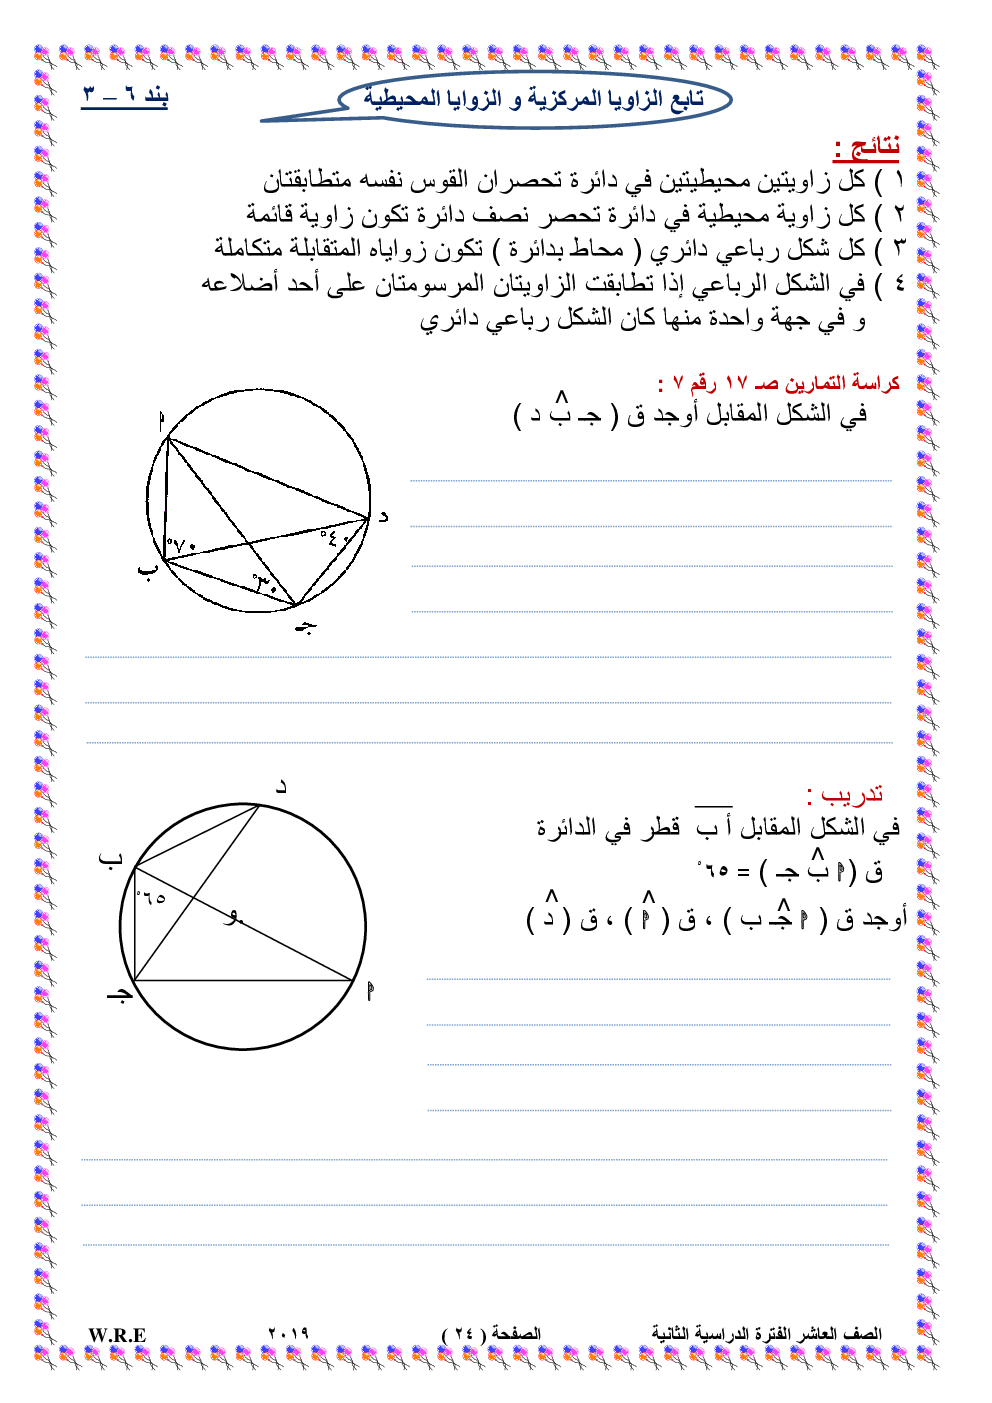 تابع الزاويا المركزية و الزوايا المحيطية
بند ٦ – ٣
نتائج :
١ ) كل زاويتين محيطيتين في دائرة تحصران القوس نفسه متطابقتان
٢ ) كل زاوية محيطية في دائرة تحصر نصف دائرة تكون زاوية قائمة
٣ ) كل شكل رباعي دائري ( محاط بدائرة ) تكون زواياه المتقابلة متكاملة
٤ ) في الشكل الرباعي إذا تطابقت الزاويتان المرسومتان على أحد أضلاعه
و في جهة واحدة منها كان الشكل رباعي دائري
كراسة التمارين صـ ١٧ رقم ٧ :
في الشكل المقابل أوجد ق ( جـ ب^ د )
أ
د
٤٠°
٧٠°
ب
٣٠°
جـ
تدريب :
في الشكل المقابل أ ب قطر في الدائرة
ق ( أ ب^ جـ ) = ٦٥°
أوجد ق ( أ جـ^ ب ) ، ق ( أ^ ) ، ق ( د^ )
د
ب
٦٥°
و
جـ
أ
الصف العاشر الفترة الدراسية الثانية
الصفحة ( ٢٤ )
٢٠١٩
W.R.E